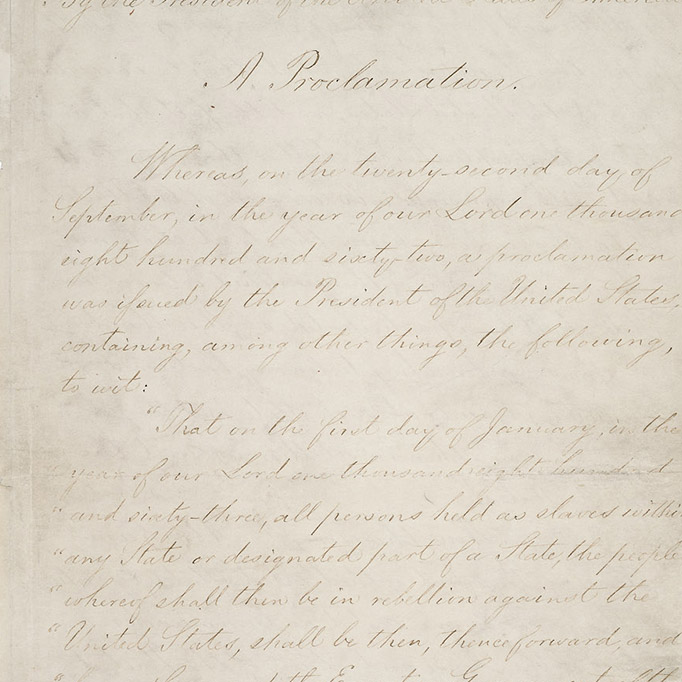 By the President of the United States of America
A Proclamation.
Whereas, on the twenty-second day of
September, in the year of our Lord one thousand
eight hundred and sixty-two, a proclamation
was issued by the President of the United States,
containing, among other things, the following,
to wit:
"That on the first day of January, in the
"year of our Lord one thousand eight hundred
"and sixty-three, all persons held as slaves within
"any State or designated part of a State, the people
"whereof shall then be in rebellion against the
"United States, shall be then, thenceforward, and